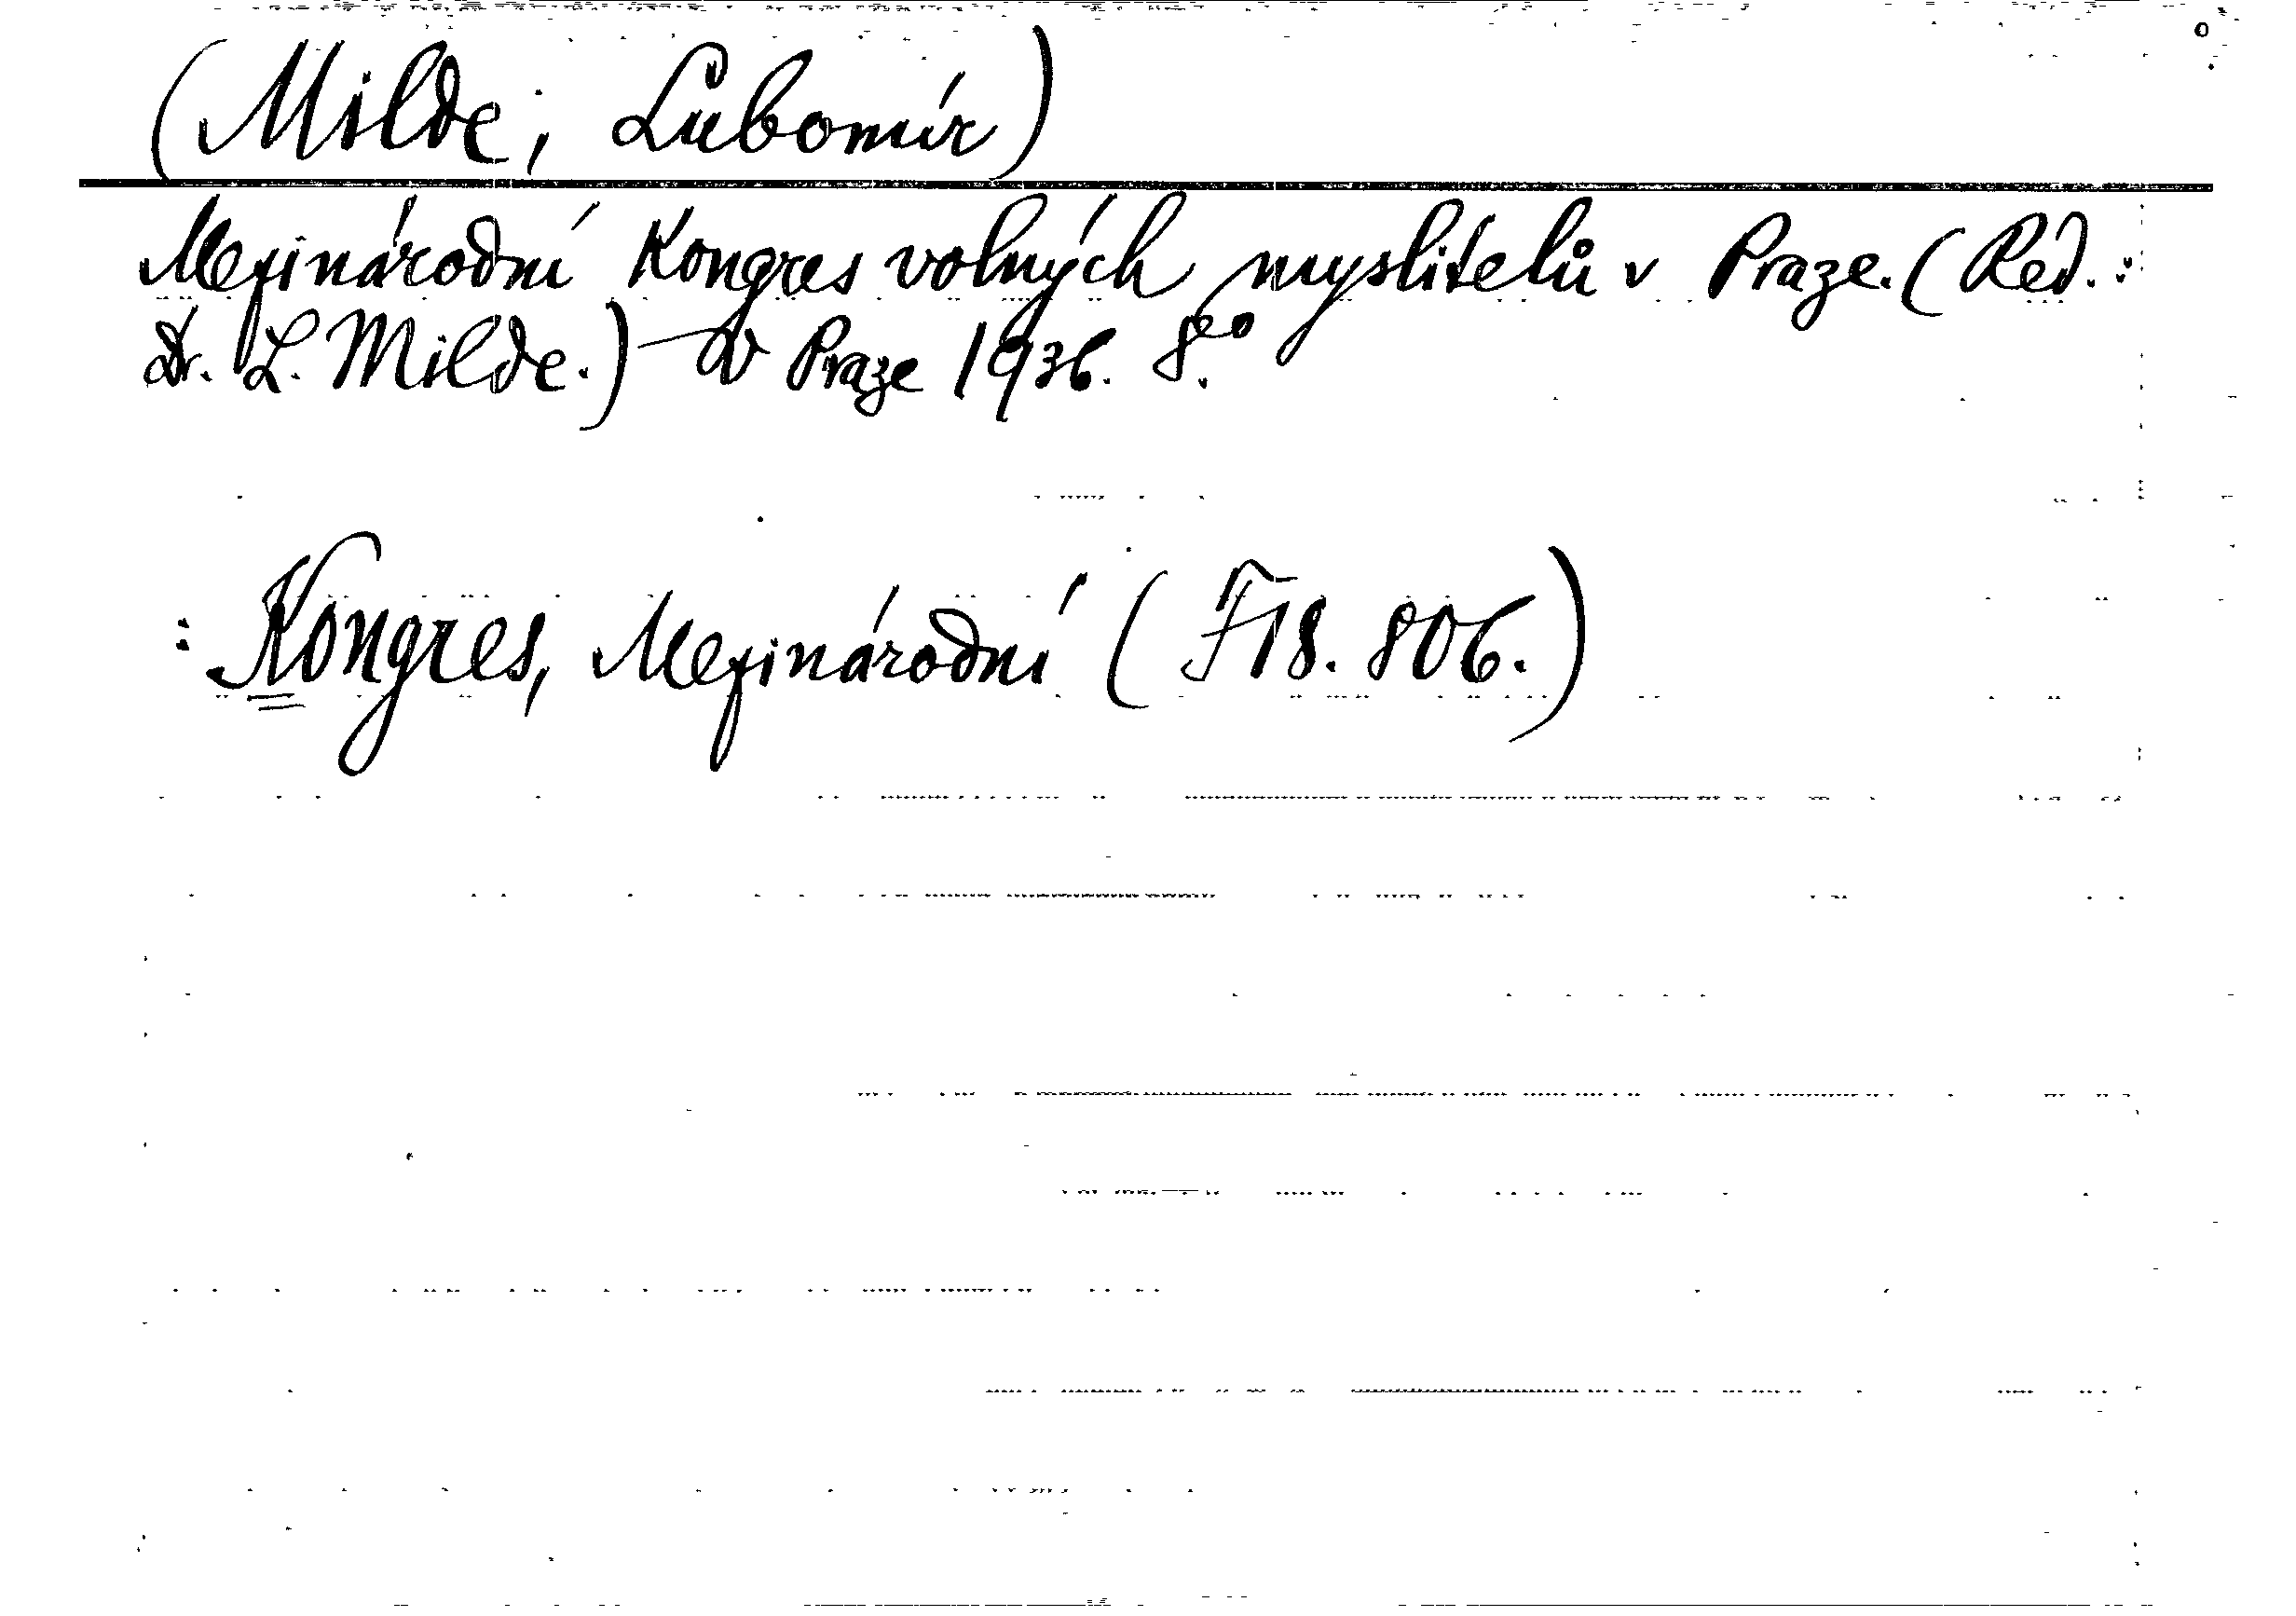 (Milde, Lubomír)
Mezinárodní Kongres volných myslitelů v Praze. (Red.:
Dr. L. Milde.) V Praze 1936. 8°.
: Kongres, Mezinárodní (F 18. 806.)